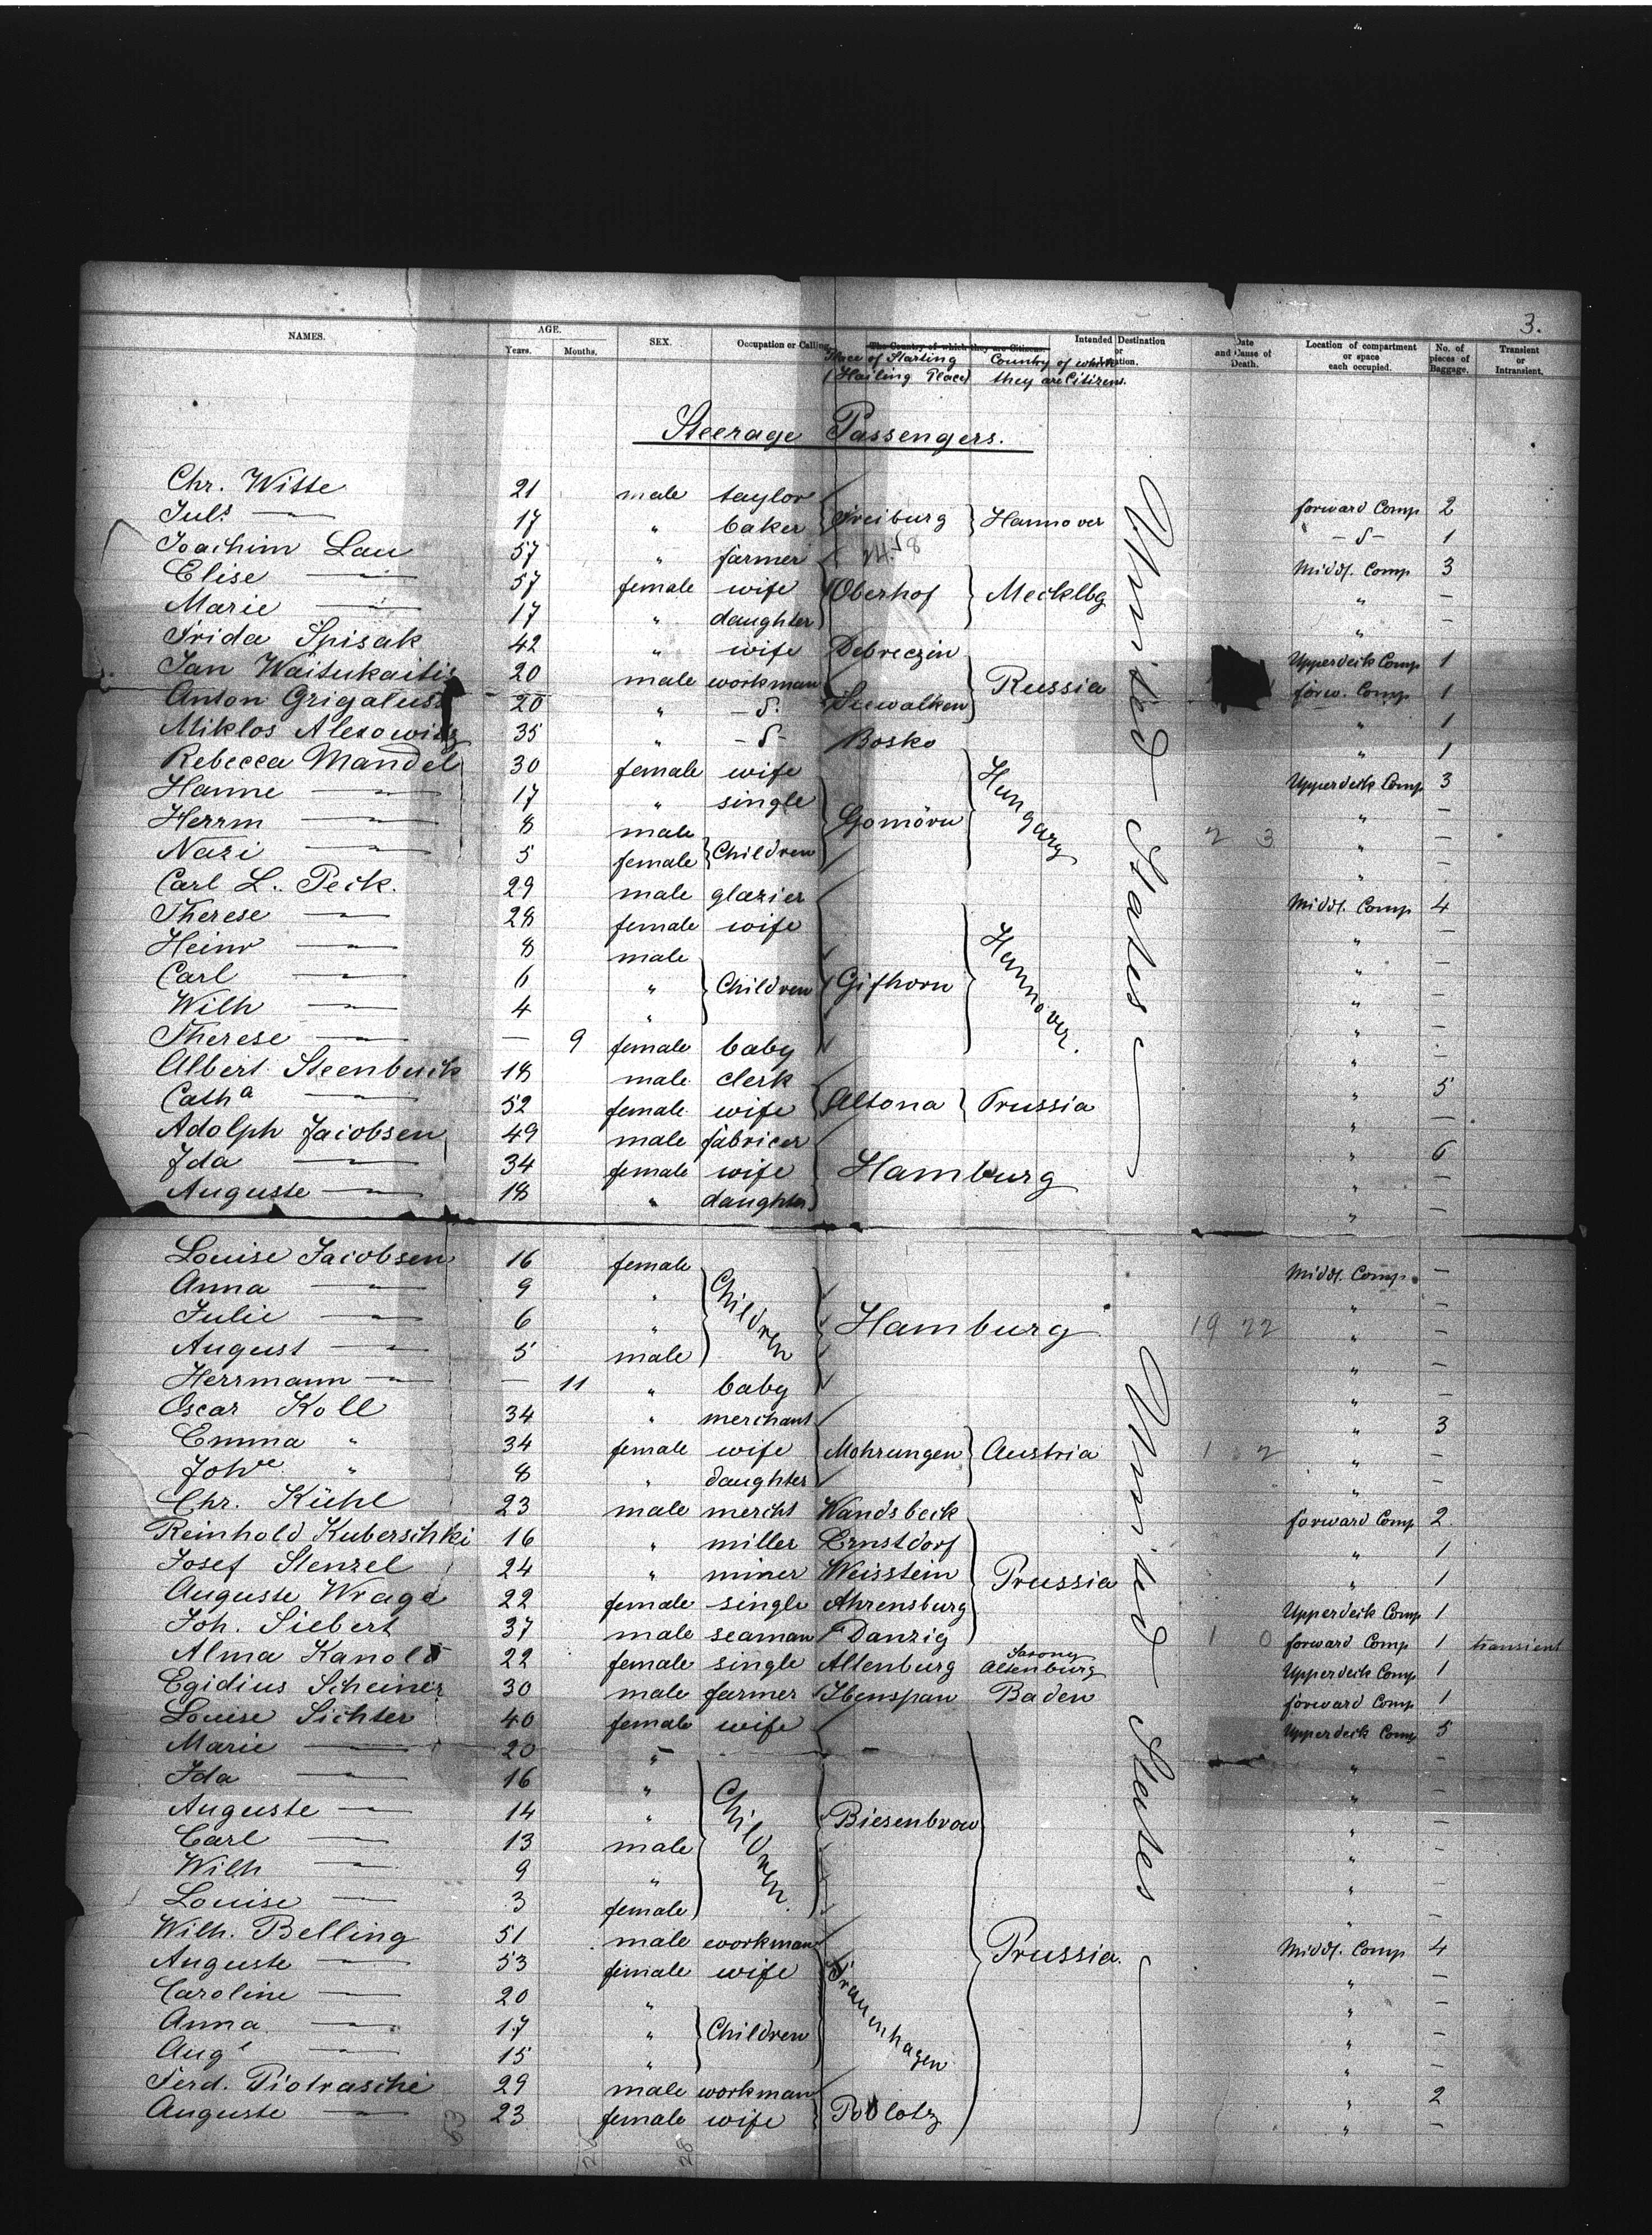 3.
NAMES. AGE. SEX. Occupation or Calling The Country of which they are Citizens. Intended Destination or Location. Date and Cause of Death. Location of compartment or space each occupied. No. of pieces of Baggage. Transient or Intransient.
Years. Months. Place of Starting (Hailing Place) Country of which they are Citizens.
Steerage Passengers.
United States
Chr. Witte 21 male taylor forward Comp 2
Juls — 17 " baker Freiburg Hannover " -S- 1
Joachim Lau 57 " farmer Middl. Comp 3
Elise — 57 female wife Oberhof Mecklbg " -
Marie — 17 " daughter " -
Frida Spisak 42 " wife Debreczin Upperdeck Comp 1
Jan Waitukaitis 20 male workman Russia forw. Comp 1
Anton Grigatus 20 " -S- Suwalken " 1
Miklos Alexowitz 35 " -S- Bosko " 1
Rebecca Mandel 30 female wife Hungary Upperdeck Comp 3
Hanne — 17 " single " -
Herrm — 8 male Children Gomöru 2 3 " -
Nazi — 5 female " -
Carl L. Peck. 29 male glazier Middl. Comp 4
Therese — 28 female wife Hannover. " -
Heinr — 8 male " -
Carl — 6 " Children Gifhorn " -
Wilh — 4 " " -
Therese — — 9 female baby " -
Albert Steenbuck 18 male clerk 5
Catha — 52 female wife Altona Prussia " —
Adolph Jacobsen 49 male fabricer " 6
Ida — 34 female wife Hamburg " -
Auguste — 18 " daughter " -
Louise Jacobsen 16 female Children Middl. Comp. -
Anna — 9 " " -
Julie — 6 " Hamburg 19 22 " -
August — 5 male " -
Herrmann — — 11 " baby " -
United States
Oscar Koll 34 " merchant " 3
Emma " 34 female wife Mohrungen Austria 1 2 " -
Johne " 8 " daughter " -
Chr. Kühl 23 male mercht Wandsbeck forward Comp 2
Reinhold Kuberschki 16 " miller Ernstdorf " 1
Josef Stenzel 24 " miner Weisstein Prussia " 1
Auguste Wrage 22 female single Ahrensburg Upperdeck Comp 1
Joh. Siebert 37 male seaman Danzig 1 0 forward Comp 1 transient
Alma Kanold 22 female single Altenburg Saxony Altenburg Upperdeck Comp 1
Egidius Scheiner 30 male farmer Ibenspan Baden forward Comp 1
Louise Sichter 40 female wife Upperdeck Comp 5
Marie — 20 " " -
Ida — 16 " Children " -
Auguste — 14 " Biesenbrow " -
Carl — 13 male " -
Wilh — 9 " " -
Louise — 3 female " -
Wilh. Belling 51 male workman Prussia. Middl. Comp 4
Auguste — 53 female wife Frauenhagen " -
Caroline — 20 " " -
Anna — 17 " Children " -
Auge — 15 " " -
Ferd. Piotrasche 29 male workman " 2
Auguste — 23 female wife " -
63 28